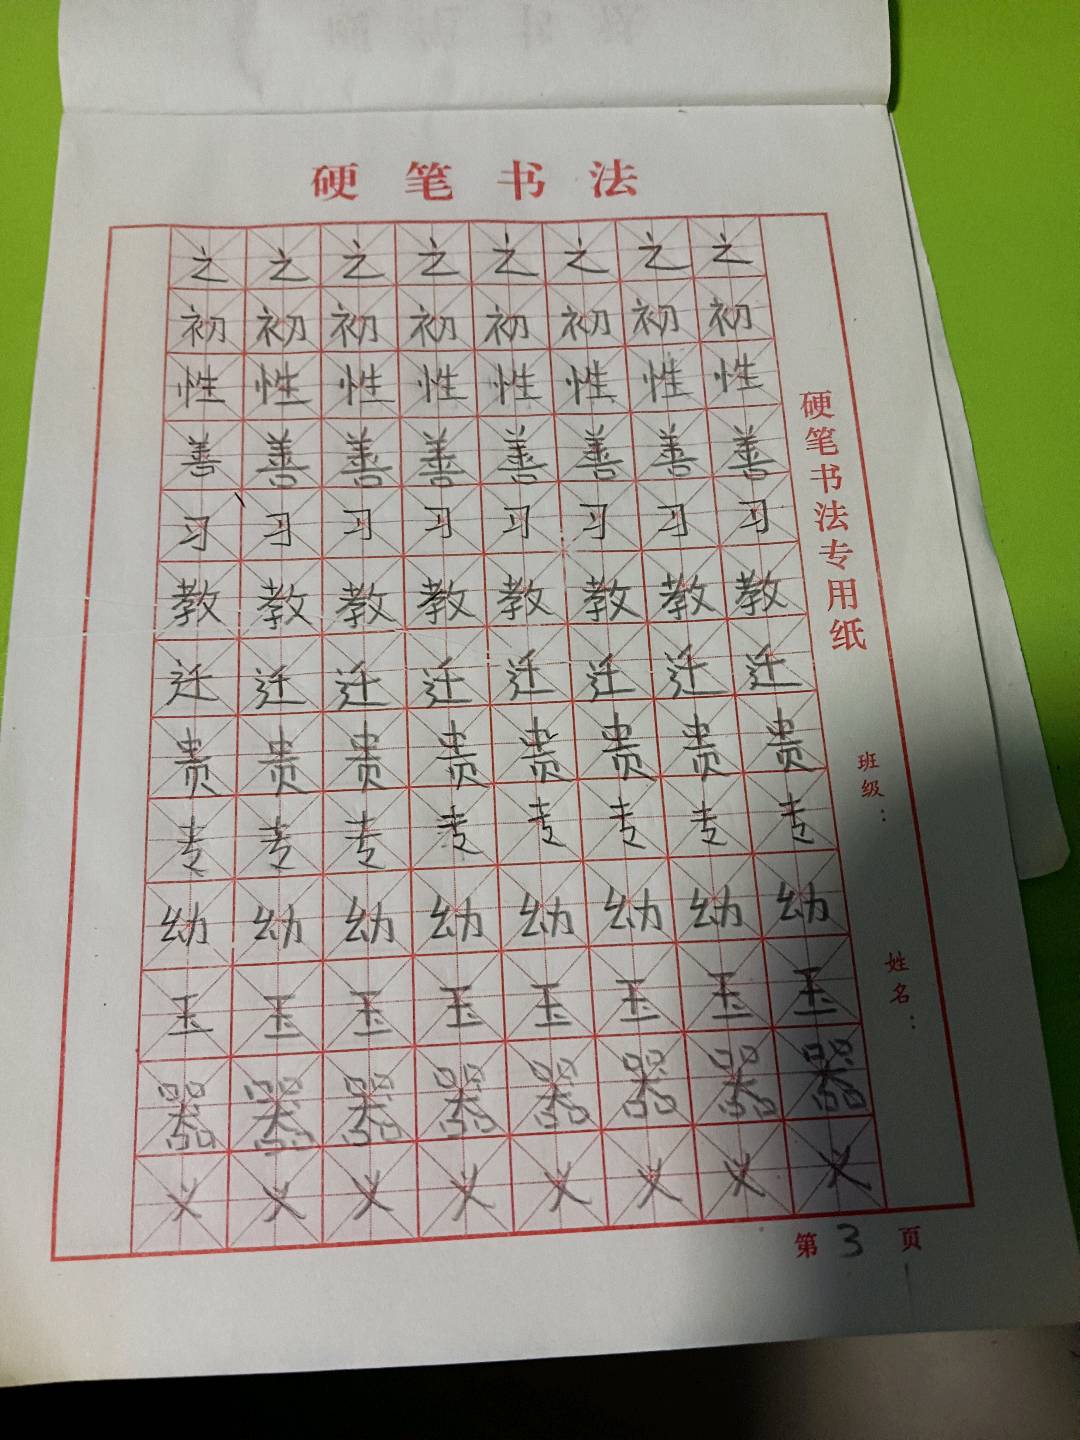 硬笔书法
之之之之之之之之
初初初初初初初初
性性性性性性性性
善善善善善善善善
习习习习习习习习
教教教教教教教教
迁迁迁迁迁迁迁迁
贵贵贵贵贵贵贵贵
专专专专专专专专
幼幼幼幼幼幼幼幼
玉玉玉玉玉玉玉玉
器器器器器器器器
义义义义义义义义
硬笔书法专用纸
班级：
姓名：
第3页